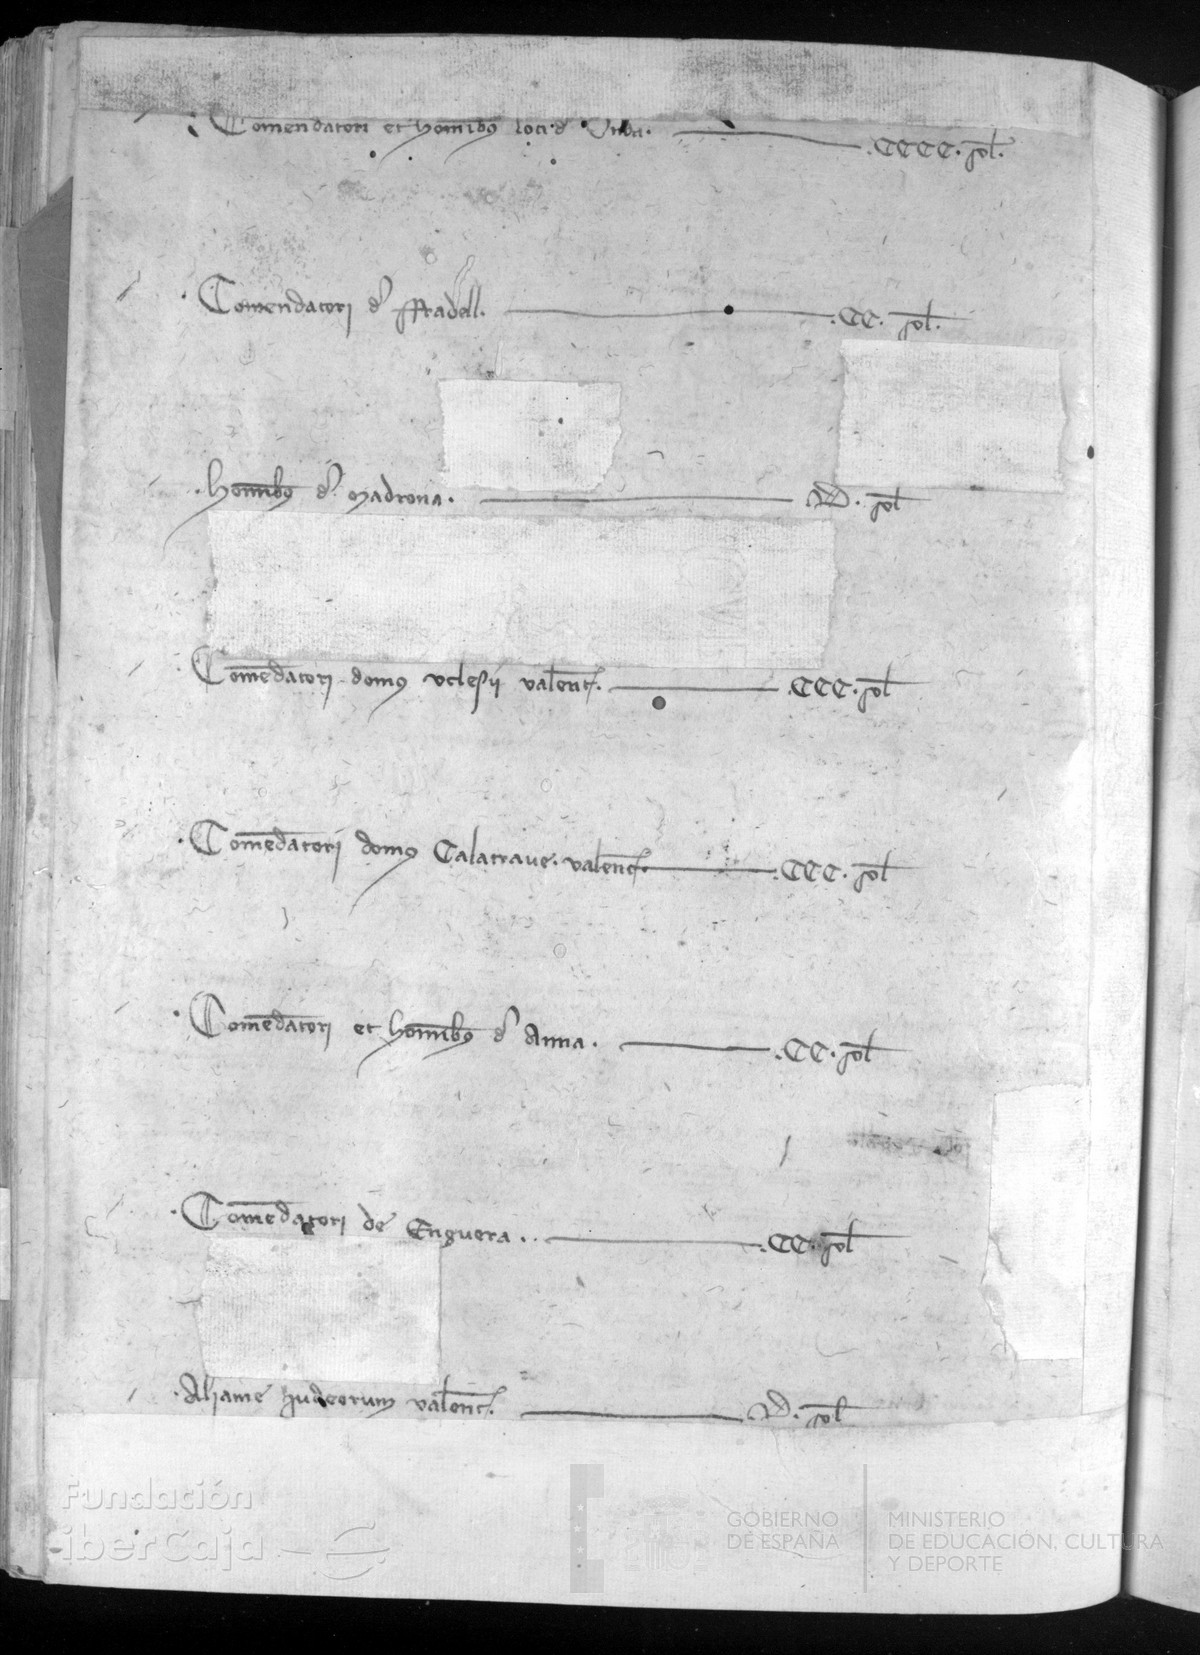 Comendatori et hominibꝰ loci d᾽ .CCCC. sol.
Comendatori d᾽ ffradell. .CC. sol.
hoīnibꝰ d᾽ Madrona. .D. sol
Comēdatori domꝰ vclesij valenc̄. .CCC. sol
Comēdatori domꝰ Calatraue. valenc̄. .CCC. sol
Comēdatori et hoīnibꝰ d᾽ Anna. .CC. sol
Comēdatori de Enguera.. .CC. sol
Aljame judeorum valenc̄. .D. sol
Fundación
iberCaja
GOBIERNO
DE ESPAÑA
MINISTERIO
DE EDUCACIÓN, CULTURA
Y DEPORTE